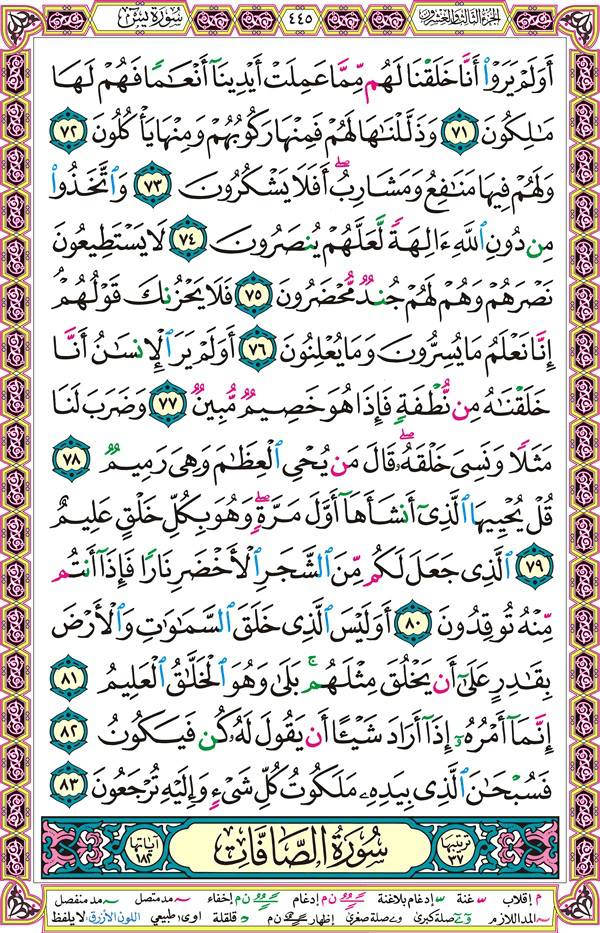 الجزء الثالث والعشرون ٤٤٥ سورة يس
أَوَلَمْ يَرَوْا۟ أَنَّا خَلَقْنَا لَهُم مِّمَّا عَمِلَتْ أَيْدِينَآ أَنْعَٰمًا فَهُمْ لَهَا
مَٰلِكُونَ ٧١ وَذَلَّلْنَٰهَا لَهُمْ فَمِنْهَا رَكُوبُهُمْ وَمِنْهَا يَأْكُلُونَ ٧٢
وَلَهُمْ فِيهَا مَنَٰفِعُ وَمَشَارِبُ ۖ أَفَلَا يَشْكُرُونَ ٧٣ وَٱتَّخَذُوا۟
مِن دُونِ ٱللَّهِ ءَالِهَةً لَّعَلَّهُمْ يُنصَرُونَ ٧٤ لَا يَسْتَطِيعُونَ
نَصْرَهُمْ وَهُمْ لَهُمْ جُندٌ مُّحْضَرُونَ ٧٥ فَلَا يَحْزُنكَ قَوْلُهُمْ
إِنَّا نَعْلَمُ مَا يُسِرُّونَ وَمَا يُعْلِنُونَ ٧٦ أَوَلَمْ يَرَ ٱلْإِنسَٰنُ أَنَّا
خَلَقْنَٰهُ مِن نُّطْفَةٍ فَإِذَا هُوَ خَصِيمٌ مُّبِينٌ ٧٧ وَضَرَبَ لَنَا
مَثَلًا وَنَسِىَ خَلْقَهُۥ ۖ قَالَ مَن يُحْىِ ٱلْعِظَٰمَ وَهِىَ رَمِيمٌ ٧٨
قُلْ يُحْيِيهَا ٱلَّذِىٓ أَنشَأَهَآ أَوَّلَ مَرَّةٍ ۖ وَهُوَ بِكُلِّ خَلْقٍ عَلِيمٌ
٧٩ ٱلَّذِى جَعَلَ لَكُم مِّنَ ٱلشَّجَرِ ٱلْأَخْضَرِ نَارًا فَإِذَآ أَنتُم
مِّنْهُ تُوقِدُونَ ٨٠ أَوَلَيْسَ ٱلَّذِى خَلَقَ ٱلسَّمَٰوَٰتِ وَٱلْأَرْضَ
بِقَٰدِرٍ عَلَىٰٓ أَن يَخْلُقَ مِثْلَهُم ۚ بَلَىٰ وَهُوَ ٱلْخَلَّٰقُ ٱلْعَلِيمُ ٨١
إِنَّمَآ أَمْرُهُۥٓ إِذَآ أَرَادَ شَيْـًٔا أَن يَقُولَ لَهُۥ كُن فَيَكُونُ ٨٢
فَسُبْحَٰنَ ٱلَّذِى بِيَدِهِۦ مَلَكُوتُ كُلِّ شَىْءٍ وَإِلَيْهِ تُرْجَعُونَ ٨٣
ترتيبها ٣٧ سُورَةُ الصَّافَّاتِ آياتها ١٨٢
م إقلاب غنة إدغام بلاغنة ن م إدغام ن م إخفاء مد متصل مد منفصل
مد اللازم صلة كبرى صلة صغرى إظهار ن م قلقلة اوى طبيعي اللون الأزرق: لا يلفظ